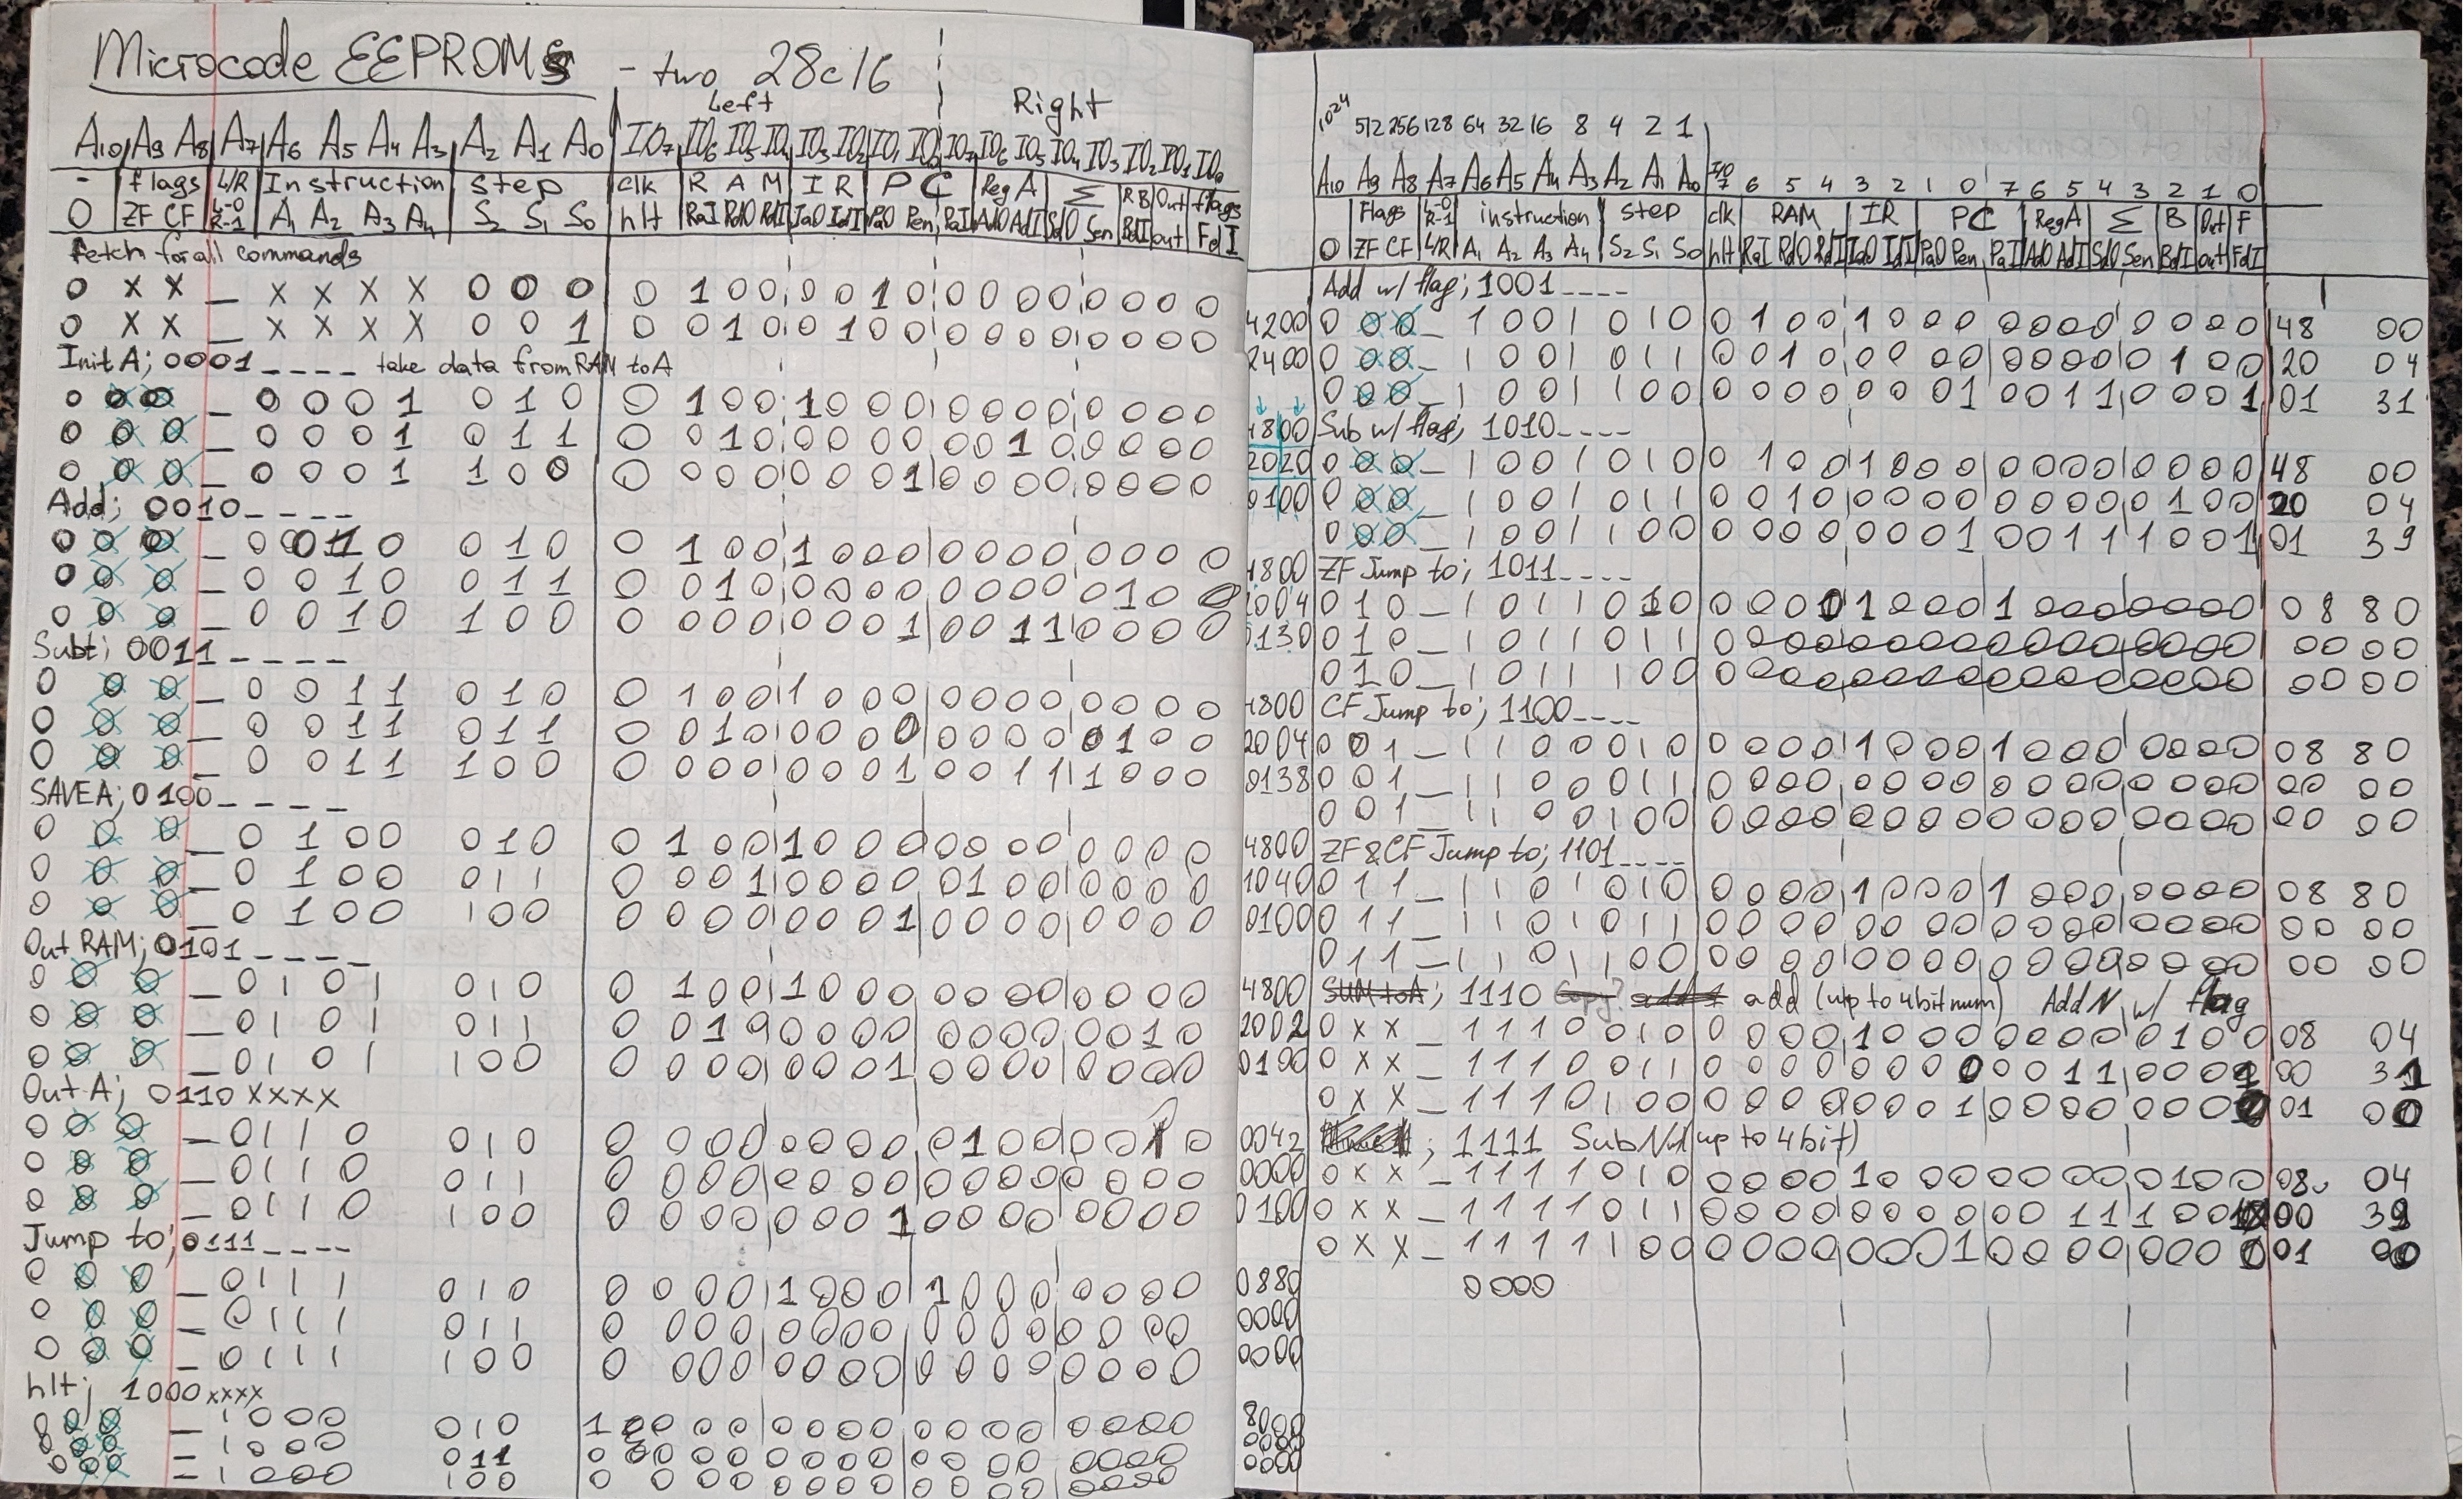 Microcode EEPROMs - two 28c16
Left Right
A10 A9 A8 A7 A6 A5 A4 A3 A2 A1 A0 IO7 IO6 IO5 IO4 IO3 IO2 IO1 IO0 IO7 IO6 IO5 IO4 IO3 IO2 IO1 IO0
- flags L/R Instruction Step clk RAM IR PC Reg A Σ RB Out flags
0 ZF CF L-0 R-1 A1 A2 A3 A4 S2 S1 S0 hlt RaI RdO RdI IaO IdI PaO Pen PaI AdO AdI SdO Sen BdI out FdI
Fetch for all commands
0 X X _ X X X X 0 0 0 0 1 0 0 0 0 1 0 0 0 0 0 0 0 0 0
0 X X _ X X X X 0 0 1 0 0 1 0 0 1 0 0 0 0 0 0 0 0 0 0
Init A; 0001 _ _ _ _ take data from RAM to A
0 0 0 _ 0 0 0 1 0 1 0 0 1 0 0 1 0 0 0 0 0 0 0 0 0 0 0
0 0 0 _ 0 0 0 1 0 1 1 0 0 1 0 0 0 0 0 0 0 1 0 0 0 0 0
0 0 0 _ 0 0 0 1 1 0 0 0 0 0 0 0 0 0 1 0 0 0 0 0 0 0 0
Add; 0010 _ _ _ _
0 0 0 _ 0 0 1 0 0 1 0 0 1 0 0 1 0 0 0 0 0 0 0 0 0 0 0
0 0 0 _ 0 0 1 0 0 1 1 0 0 1 0 0 0 0 0 0 0 0 0 0 1 0 0
0 0 0 _ 0 0 1 0 1 0 0 0 0 0 0 0 0 0 1 0 0 1 1 0 0 0 0
Subt; 0011 _ _ _ _
0 0 0 _ 0 0 1 1 0 1 0 0 1 0 0 1 0 0 0 0 0 0 0 0 0 0 0
0 0 0 _ 0 0 1 1 0 1 1 0 0 1 0 0 0 0 0 0 0 0 0 0 1 0 0
0 0 0 _ 0 0 1 1 1 0 0 0 0 0 0 0 0 0 1 0 0 1 1 1 0 0 0
SAVE A; 0100 _ _ _ _
0 0 0 _ 0 1 0 0 0 1 0 0 1 0 0 1 0 0 0 0 0 0 0 0 0 0 0
0 0 0 _ 0 1 0 0 0 1 1 0 0 0 1 0 0 0 0 0 1 0 0 0 0 0 0
0 0 0 _ 0 1 0 0 1 0 0 0 0 0 0 0 0 0 1 0 0 0 0 0 0 0 0
Out RAM; 0101 _ _ _ _
0 0 0 _ 0 1 0 1 0 1 0 0 1 0 0 1 0 0 0 0 0 0 0 0 0 0 0
0 0 0 _ 0 1 0 1 0 1 1 0 0 1 0 0 0 0 0 0 0 0 0 0 0 1 0
0 0 0 _ 0 1 0 1 1 0 0 0 0 0 0 0 0 0 1 0 0 0 0 0 0 0 0
Out A; 0110 XXXX
0 0 0 _ 0 1 1 0 0 1 0 0 0 0 0 0 0 0 0 0 1 0 0 0 0 1 0
0 0 0 _ 0 1 1 0 0 1 1 0 0 0 0 0 0 0 0 0 0 0 0 0 0 0 0
0 0 0 _ 0 1 1 0 1 0 0 0 0 0 0 0 0 0 1 0 0 0 0 0 0 0 0
Jump to; 0111 _ _ _ _
0 0 0 _ 0 1 1 1 0 1 0 0 0 0 0 1 0 0 0 1 0 0 0 0 0 0 0
0 0 0 _ 0 1 1 1 0 1 1 0 0 0 0 0 0 0 0 0 0 0 0 0 0 0 0
0 0 0 _ 0 1 1 1 1 0 0 0 0 0 0 0 0 0 0 0 0 0 0 0 0 0 0
hlt; 1000 xxxx
0 0 0 _ 1 0 0 0 0 1 0 1 0 0 0 0 0 0 0 0 0 0 0 0 0 0 0
0 0 0 _ 1 0 0 0 0 1 1 0 0 0 0 0 0 0 0 0 0 0 0 0 0 0 0
0 0 0 _ 1 0 0 0 1 0 0 0 0 0 0 0 0 0 0 0 0 0 0 0 0 0 0
1024 512 256 128 64 32 16 8 4 2 1
A10 A9 A8 A7 A6 A5 A4 A3 A2 A1 A0 I/O 7 6 5 4 3 2 1 0 7 6 5 4 3 2 1 0
Flags L-0 R-1 instruction step clk RAM IR PC Reg A Σ B Out F
0 ZF CF L/R A1 A2 A3 A4 S2 S1 S0 hlt RaI RdO RdI IaO IdI PaO Pen PaI AdO AdI SdO Sen BdI out FdI
Add w/ flag; 1001 _ _ _ _
4200 0 0 0 _ 1 0 0 1 0 1 0 0 1 0 0 1 0 0 0 0 0 0 0 0 0 0 0 48 00
2400 0 0 0 _ 1 0 0 1 0 1 1 0 0 1 0 0 0 0 0 0 0 0 0 0 1 0 0 20 04
0 0 0 _ 1 0 0 1 1 0 0 0 0 0 0 0 0 0 1 0 0 1 1 0 0 0 1 01 31
4800 Sub w/ flag; 1010 _ _ _ _
2020 0 0 0 _ 1 0 0 1 0 1 0 0 1 0 0 1 0 0 0 0 0 0 0 0 0 0 0 48 00
0100 0 0 0 _ 1 0 0 1 0 1 1 0 0 1 0 0 0 0 0 0 0 0 0 0 1 0 0 20 04
0 0 0 _ 1 0 0 1 1 0 0 0 0 0 0 0 0 0 1 0 0 1 1 1 0 0 1 01 39
4800 ZF Jump to; 1011 _ _ _ _
2004 0 1 0 _ 1 0 1 1 0 1 0 0 0 0 0 1 0 0 0 1 0 0 0 0 0 0 0 08 80
0130 0 1 0 _ 1 0 1 1 0 1 1 0 0 0 0 0 0 0 0 0 0 0 0 0 0 0 0 00 00
0 1 0 _ 1 0 1 1 1 0 0 0 0 0 0 0 0 0 0 0 0 0 0 0 0 0 0 00 00
4800 CF Jump to; 1100 _ _ _ _
2004 0 0 1 _ 1 1 0 0 0 1 0 0 0 0 0 1 0 0 0 1 0 0 0 0 0 0 0 08 80
0138 0 0 1 _ 1 1 0 0 0 1 1 0 0 0 0 0 0 0 0 0 0 0 0 0 0 0 0 00 00
0 0 1 _ 1 1 0 0 1 0 0 0 0 0 0 0 0 0 0 0 0 0 0 0 0 0 0 00 00
4800 ZF&CF Jump to; 1101 _ _ _ _
1040 0 1 1 _ 1 1 0 1 0 1 0 0 0 0 0 1 0 0 0 1 0 0 0 0 0 0 0 08 80
0100 0 1 1 _ 1 1 0 1 0 1 1 0 0 0 0 0 0 0 0 0 0 0 0 0 0 0 0 00 00
0 1 1 _ 1 1 0 1 1 0 0 0 0 0 0 0 0 0 0 0 0 0 0 0 0 0 0 00 00
4800 SUM to A; 1110 Copy? add 1 add (up to 4bit num) Add N w/ flag
2002 0 x x _ 1 1 1 0 0 1 0 0 0 0 0 1 0 0 0 0 0 0 0 0 1 0 0 08 04
0100 0 x x _ 1 1 1 0 0 1 1 0 0 0 0 0 0 0 0 0 0 1 1 0 0 0 1 00 31
0 x x _ 1 1 1 0 1 0 0 0 0 0 0 0 0 0 1 0 0 0 0 0 0 0 0 01 00
0042 ; 1111 Sub N (up to 4bit)
0000 0 x x _ 1 1 1 1 0 1 0 0 0 0 0 1 0 0 0 0 0 0 0 0 1 0 0 08 04
0100 0 x x _ 1 1 1 1 0 1 1 0 0 0 0 0 0 0 0 0 0 1 1 1 0 0 1 00 39
0 x x _ 1 1 1 1 1 0 0 0 0 0 0 0 0 0 1 0 0 0 0 0 0 0 0 01 00
0880 0000
0000
0000
8000
0000
0000